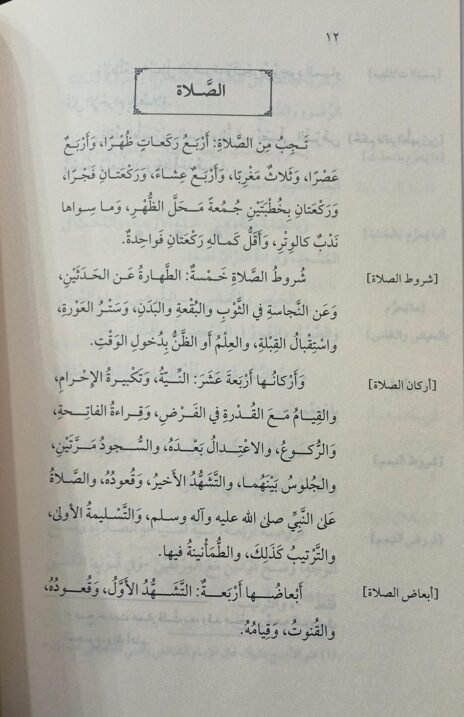 ١٢
الصَّلاة
تَجِبُ مِن الصَّلاةِ: أَرْبَعُ رَكَعاتٍ ظُهْرًا، وَأَرْبَعٌ
عَصْرًا، وَثَلاثٌ مَغْرِبًا، وَأَرْبَعٌ عِشاءً، وَرَكْعَتَانِ فَجْرًا،
وَرَكْعَتَانِ بِخُطْبَتَيْنِ جُمُعةً مَحَلَّ الظُّهْرِ، وَما سِواها
نَدْبٌ كالوِتْرِ، وَأَقَلُّ كَمالِهِ رَكْعَتَانِ فَواحِدةٌ.
[شروط الصلاة] شُروطُ الصَّلاةِ خَمْسةٌ: الطَّهارةُ عَن الحَدَثَيْنِ،
وَعَن النَّجاسةِ في الثَّوْبِ والبُقْعةِ والبَدَنِ، وَسَتْرُ العَوْرةِ،
واسْتِقْبالُ القِبْلةِ، والعِلْمُ أَو الظَّنُّ بِدُخولِ الوَقْتِ.
[أركان الصلاة] وَأَرْكانُها أَرْبَعةَ عَشَرَ: النِّيّةُ، وَتَكْبِيرةُ الإِحْرامِ،
والقِيامُ مَعَ القُدْرةِ في الفَرْضِ، وَقِراءةُ الفاتِحةِ،
وَالرُّكوعُ، والاعْتِدالُ بَعْدَهُ، والسُّجودُ مَرَّتَيْنِ،
والجُلوسُ بَيْنَهُما، والتَّشَهُّدُ الأَخيرُ، وَقُعُودُهُ، والصَّلاةُ
عَلى النَّبِيِّ صلى الله عليه وآله وسلم، والتَّسْليمةُ الأولى،
والتَّرْتيبُ كَذَلِكَ، والطُّمَأْنينةُ فيها.
[أبعاض الصلاة] أَبْعاضُها أَرْبَعةٌ: التَّشَهُّدُ الأَوَّلُ، وَقُعُودُهُ،
والقُنوتُ، وَقِيامُهُ.